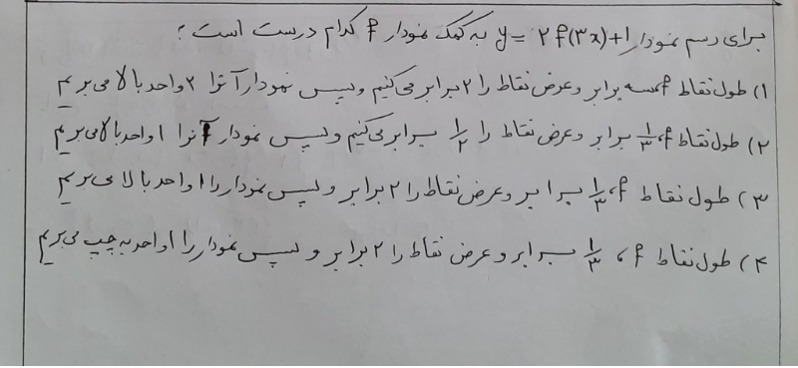 برای رسم نمودار y = ۲f(۳x)+۱ به کمک نمودار f کدام درست است؟
۱) طول نقاط f، سه برابر و عرض نقاط را ۲ برابر می‌کنیم و سپس نمودار آنرا ۲ واحد بالا می‌بریم
۲) طول نقاط f، ۱/۳ برابر و عرض نقاط را ۱/۲ برابر می‌کنیم و سپس نمودار آنرا ۱ واحد بالا می‌بریم
۳) طول نقاط f، ۱/۳ برابر و عرض نقاط را ۲ برابر و سپس نمودار را ۱ واحد بالا می‌بریم
۴) طول نقاط f، ۱/۳ برابر و عرض نقاط را ۲ برابر و سپس نمودار را ۱ واحد به چپ می‌بریم